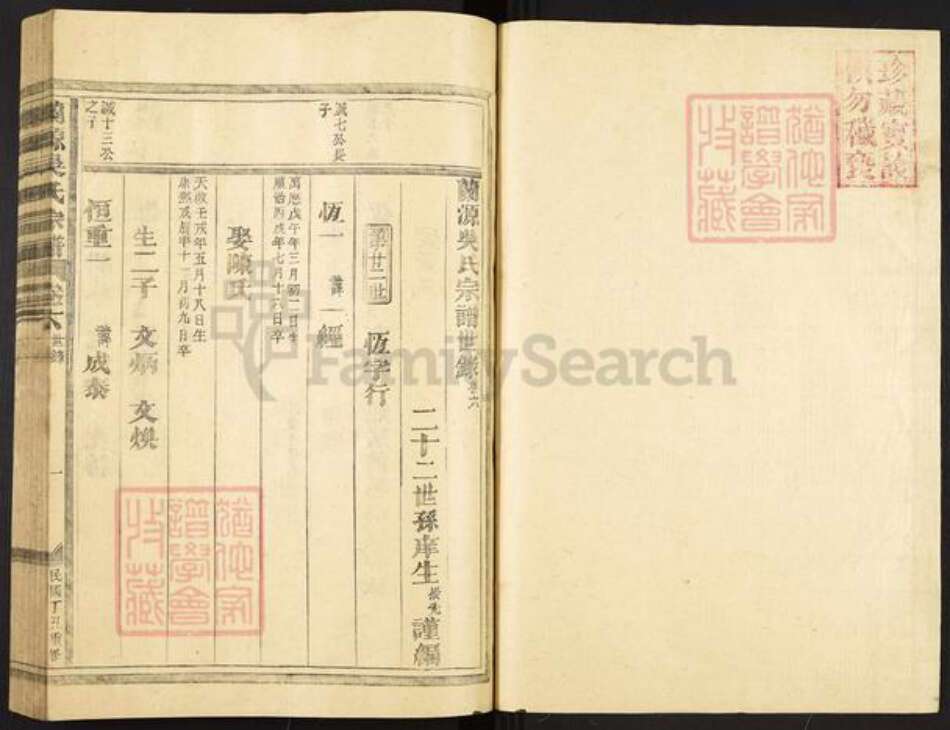 珍藏寶譜
慎勿穢褻
猶他家
譜學會
收藏
蘭源吳氏宗譜世錄卷六
二十二世孫庠生 謹編
第廿二世 恆字行
誠七公長子
恆一 諱一經
萬曆戊午年三月初二日生
順治戊戌年七月十六日卒
娶陳氏
天啟壬戌年五月十八日生
康熙 年十一月初九日卒
生二子 文炳 文煥
誠十三公之子
恆重一 諱成泰
蘭源吳氏宗譜 卷六 世錄
一
民國丁丑重修
猶他家
譜學會
收藏
FamilySearch